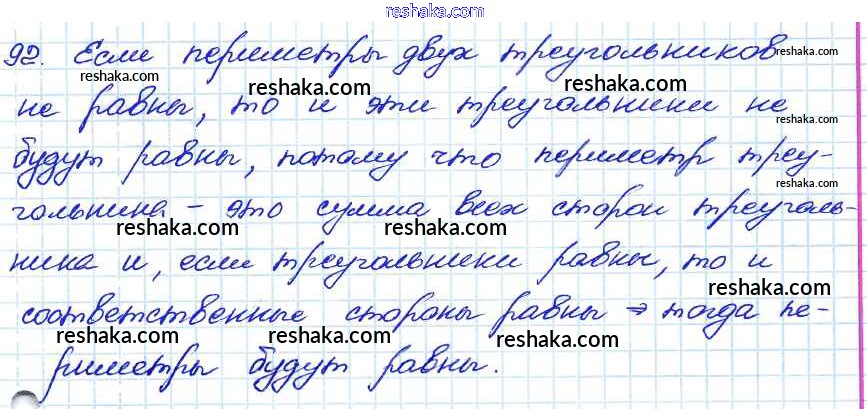 reshaka.com
92. Если периметры двух треугольников
reshaka.com
reshaka.com
reshaka.com
reshaka.com
не равны, то и эти треугольники не
будут равны, потому что периметр треу-
reshaka.com
гольника - это сумма всех сторон треуголь-
reshaka.com
reshaka.com
reshaka.com
ника и, если треугольники равны, то и
reshaka.com
соответственные стороны равны ⇒ тогда пе-
reshaka.com
reshaka.com
reshaka.com
reshaka.com
риметры будут равны.